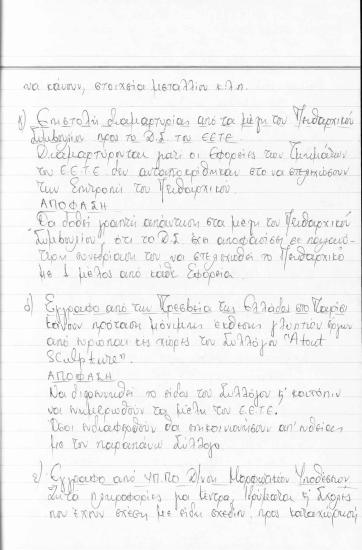 να κάνουν, στοιχεία μεταλλίου κ.λ.π.
γ) Επιστολή διαμαρτυρίας από τα μέλη του Πειθαρχικού
Συμβουλίου προς το Δ.Σ. του ΕΕΤΕ.
Διαμαρτύρονται γιατί οι Εφορείες των Τμημάτων
του Ε.Ε.Τ.Ε. δεν ανταποκρίθηκαν στο να στελεχώσουν
την Επιτροπή του Πειθαρχικού.
ΑΠΟΦΑΣΗ
Θα δοθεί γραπτή απάντηση στα μέλη του Πειθαρχικού
Συμβουλίου ότι το Δ.Σ. έχει αποφασίσει σε
συνεδρίαση του να στελεχωθεί το Πειθαρχικό
με 1 μέλος από κάθε Εφορεία.
δ) Έγγραφο από την Πρεσβεία της Ελλάδας στο Παρίσι
κάνουν πρόταση μόνιμης έκθεσης γλυπτών έργων
από ευρωπαϊκές χώρες του Συλλόγου "Atout
Sculpture".
ΑΠΟΦΑΣΗ
Να διερευνηθεί το είδος του Συλλόγου κ' κατόπιν
να ενημερωθούν τα μέλη του Ε.Ε.Τ.Ε.
Όσοι ενδιαφερθούν θα επικοινωνήσουν απ' ευθείας
με τον παραπάνω Σύλλογο.
ε) Έγγραφο από ΥΠ.ΠΟ Δ/νση Μορφωτικών Υποθέσεων
Ζητά πληροφορίες για Κέντρα, Ιδρύματα κ' Σχολές
που έχουν σχέση με είδη σχεδίων, προς καταχώρηση